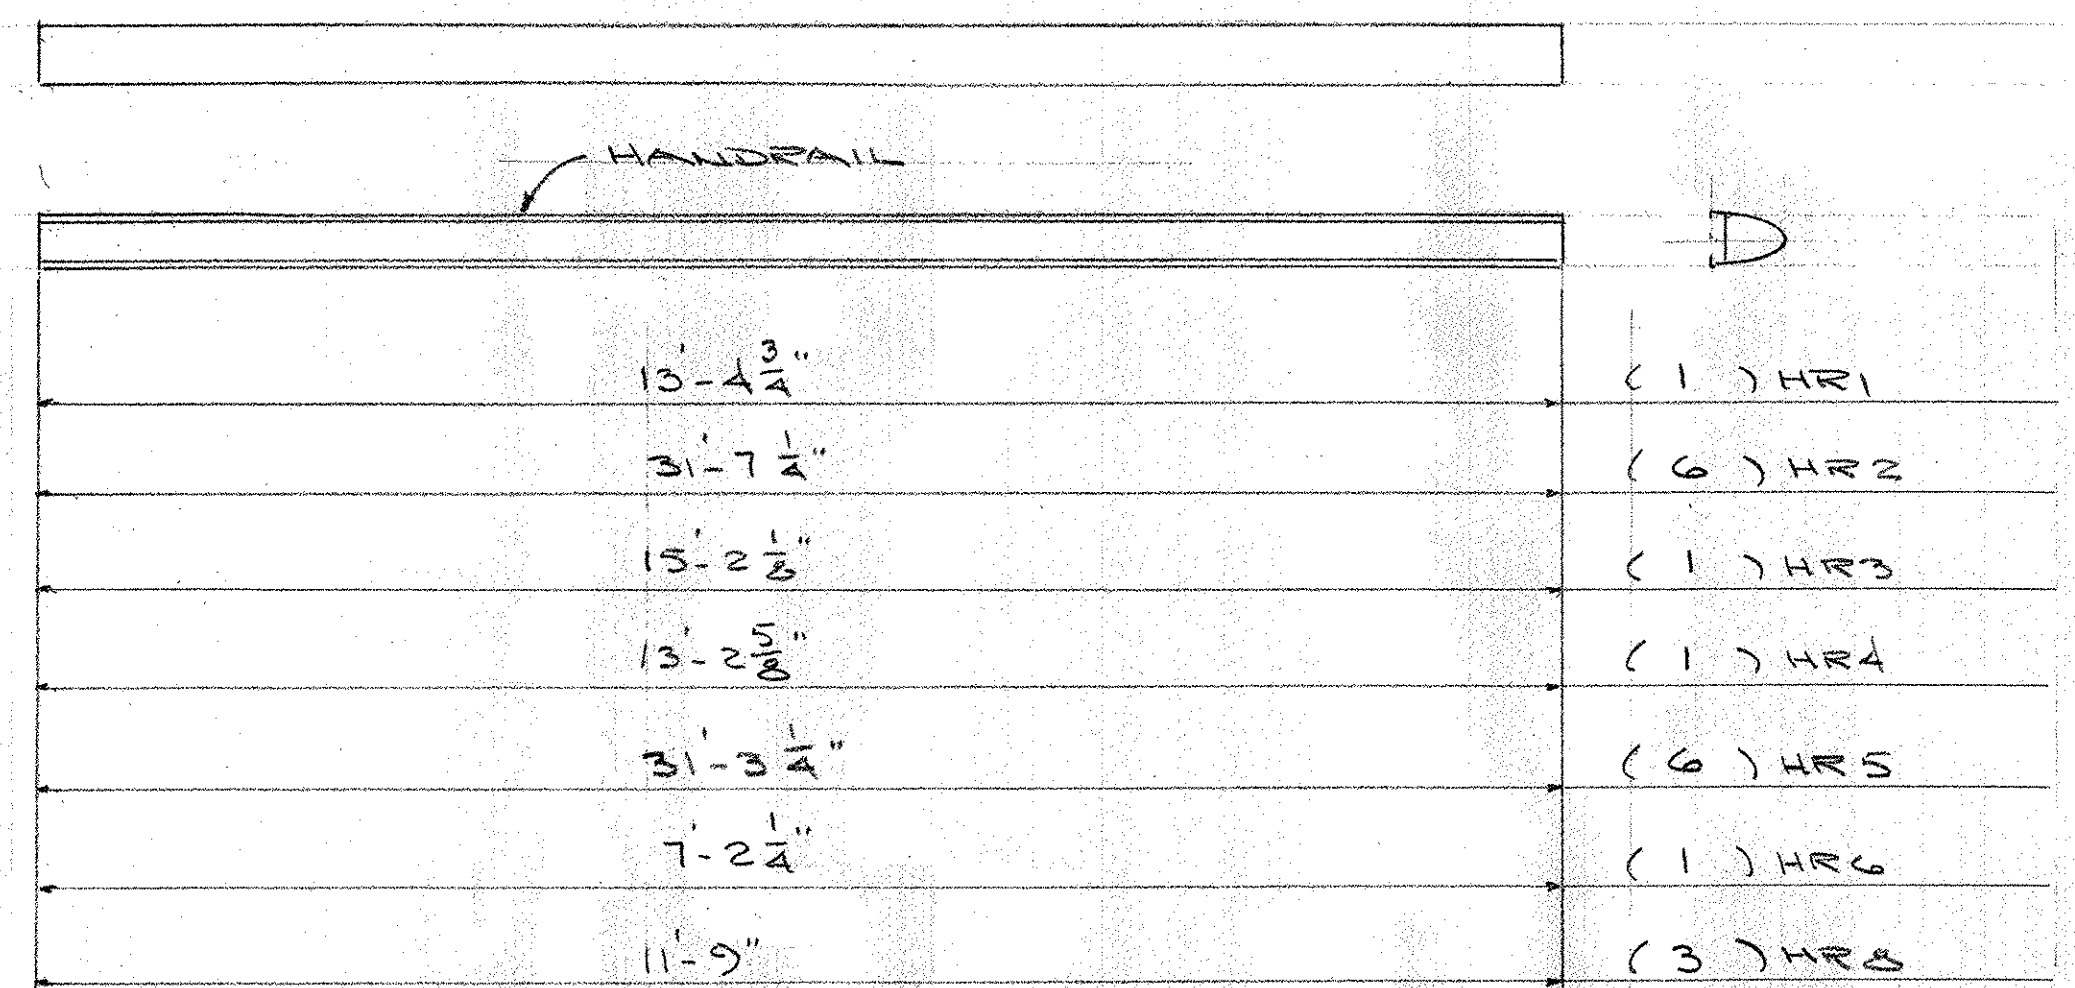 HANDRAIL
13'-4 3/4" (1) HR1
31'-7 1/4" (6) HR2
15'-2 1/8" (1) HR3
13'-2 5/8" (1) HR4
31'-3 1/4" (6) HR5
7'-2 1/4" (1) HR6
11'-9" (3) HR8